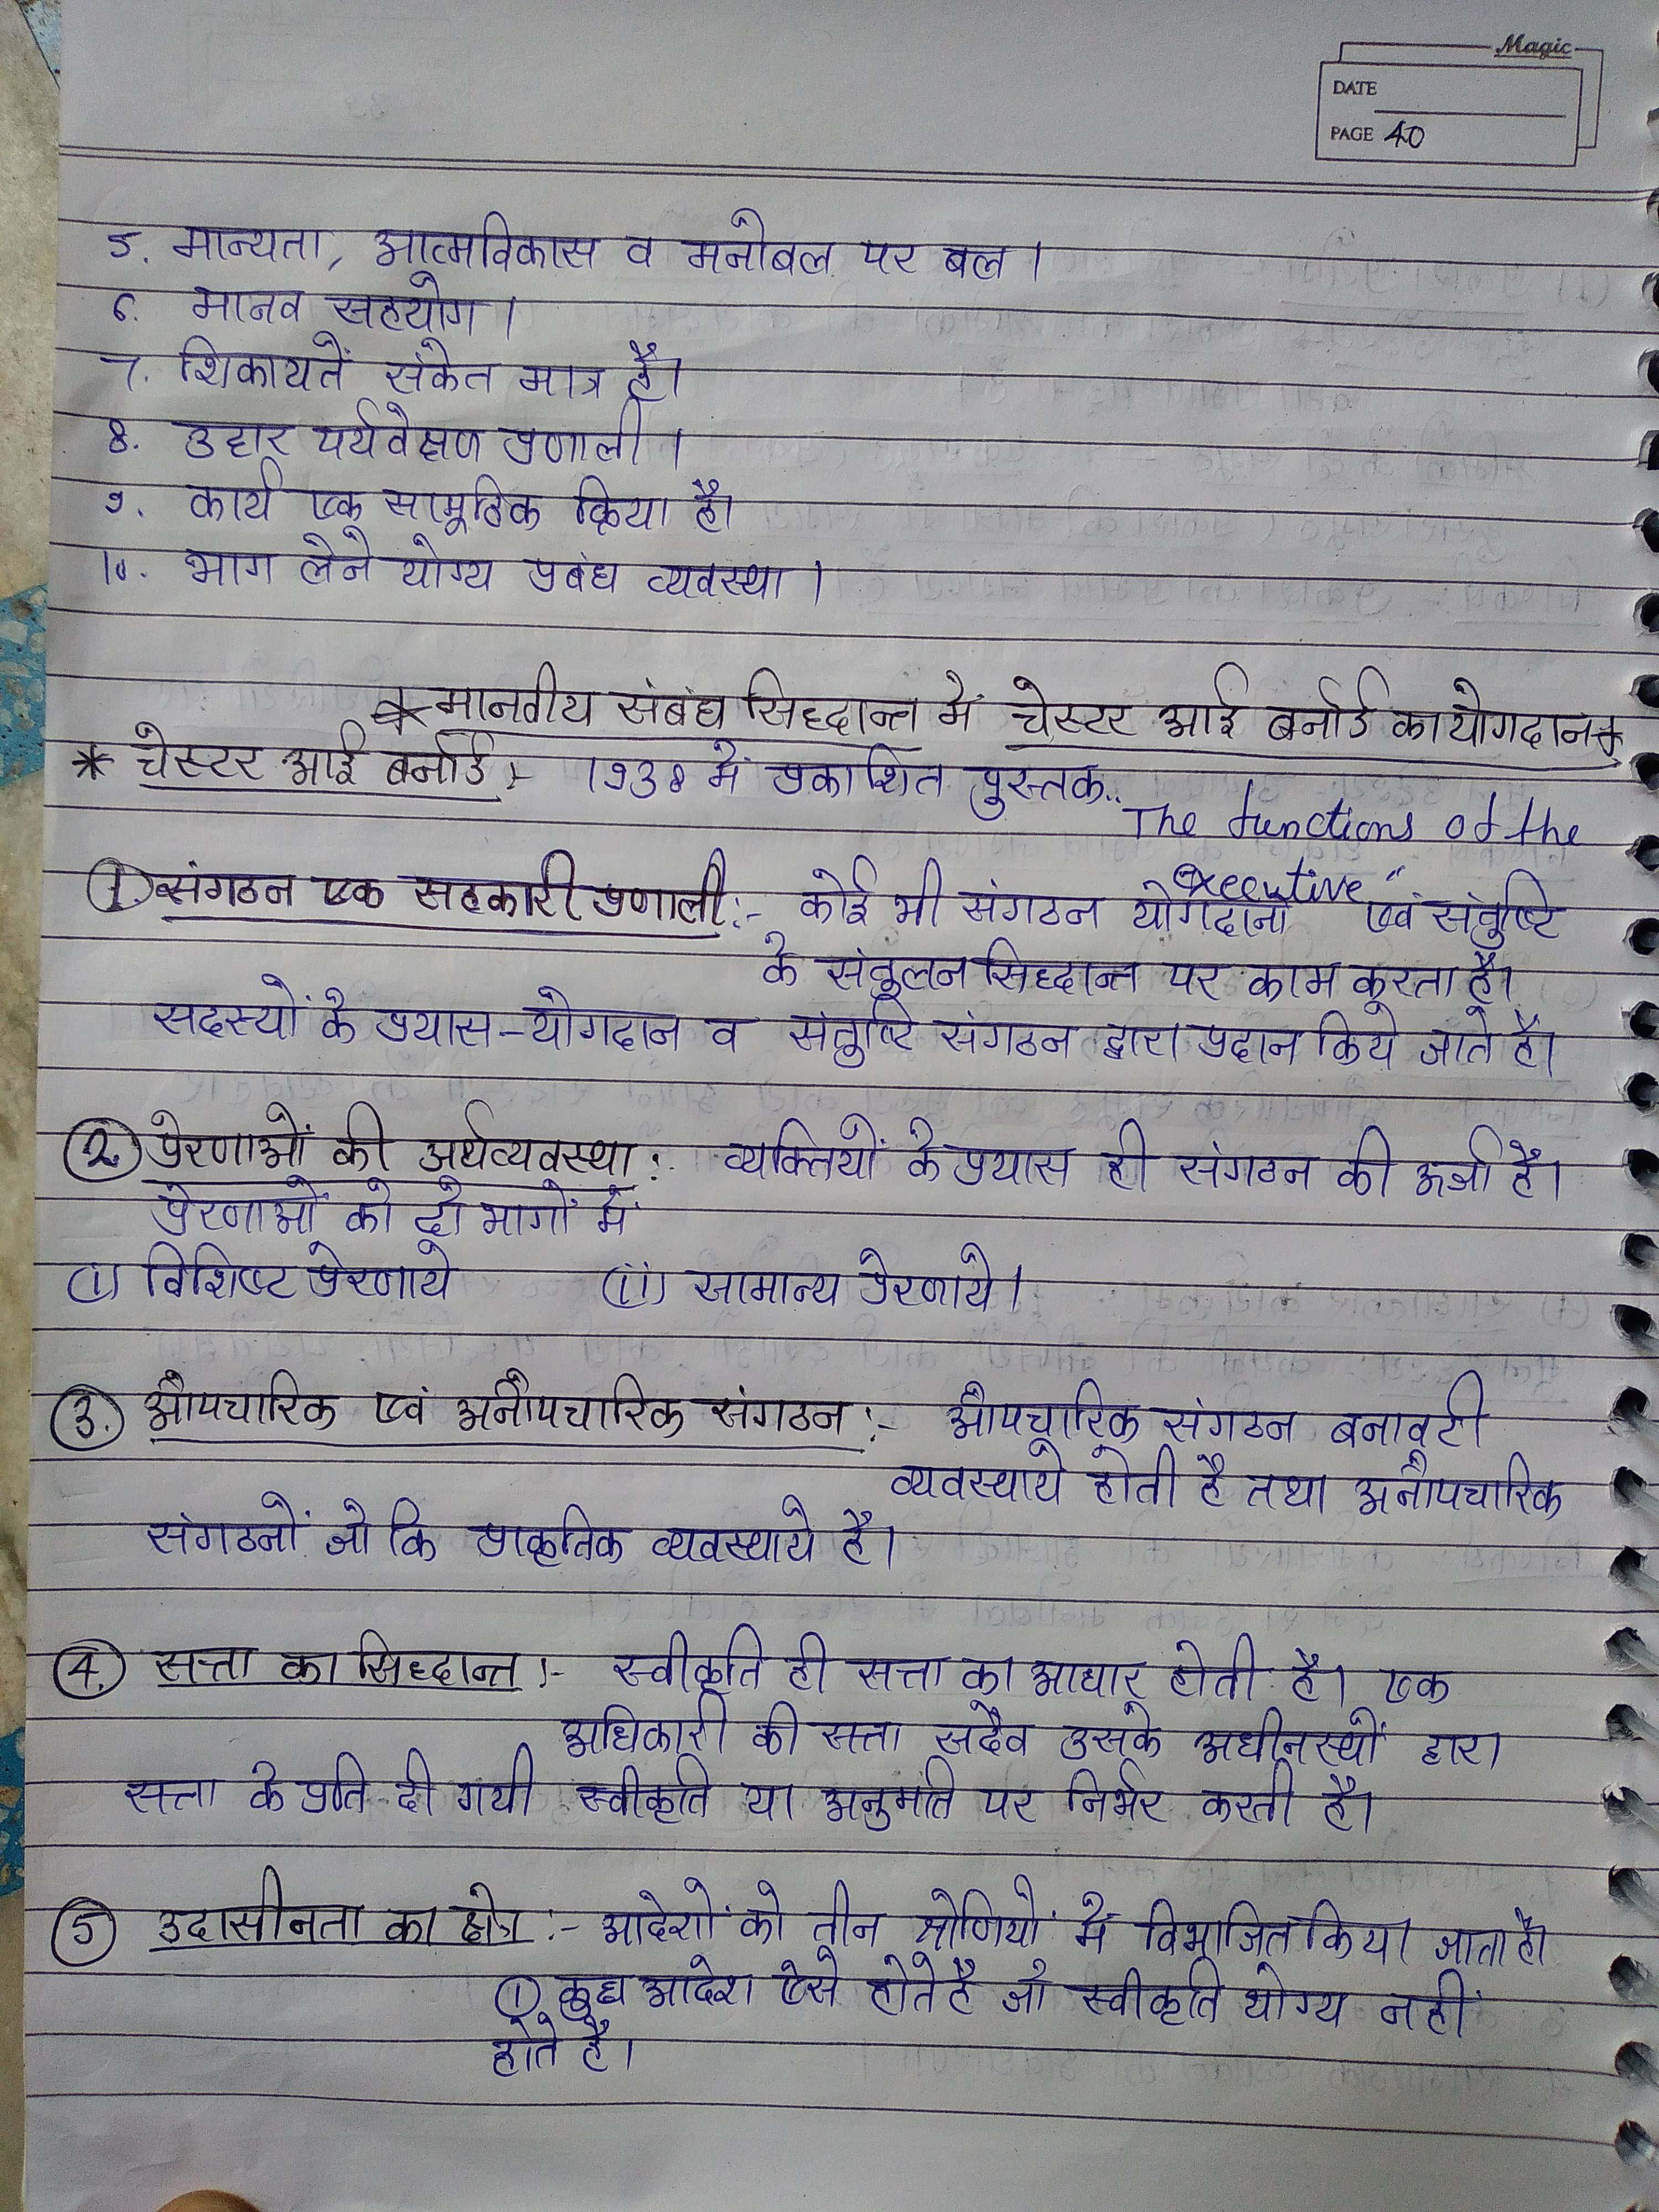 Magic
DATE
PAGE 40
5. मान्यता, आत्मविकास व मनोबल पर बल।
6. मानव सहयोग।
7. शिकायतें संकेत मात्र है।
8. उदार पर्यवेक्षण प्रणाली।
9. कार्य एक सामूहिक क्रिया है।
10. भाग लेने योग्य प्रबंध व्यवस्था।
* मानवीय संबंध सिद्धान्त में चेस्टर आई बर्नार्ड का योगदान *
* चेस्टर आई बर्नार्ड :- 1938 में प्रकाशित पुस्तक..
The functions of the
executive"
1. संगठन एक सहकारी प्रणाली :- कोई भी संगठन योगदानो एवं संतुष्टि
के संतुलन सिद्धान्त पर काम करता है।
सदस्यों के प्रयास-योगदान व संतुष्टि संगठन द्वारा प्रदान किये जाते है।
2. प्रेरणाओं की अर्थव्यवस्था :- व्यक्तियों के प्रयास ही संगठन की ऊर्जा है।
प्रेरणाओं को दो भागों में
(i) विशिष्ट प्रेरणाये (ii) सामान्य प्रेरणाये।
3. औपचारिक एवं अनौपचारिक संगठन :- औपचारिक संगठन बनावटी
व्यवस्थाये होती है तथा अनौपचारिक
संगठनों जो कि प्राकृतिक व्यवस्थाये है।
4. सत्ता का सिद्धान्त :- स्वीकृति ही सत्ता का आधार होती है। एक
अधिकारी की सत्ता सदैव उसके अधीनस्थों द्वारा
सत्ता के प्रति दी गयी स्वीकृति या अनुमति पर निर्भर करती है।
5 उदासीनता का क्षेत्र :- आदेशों को तीन श्रेणियों में विभाजित किया जाता है।
① कुछ आदेश ऐसे होते है जो स्वीकृति योग्य नहीं
होते है।